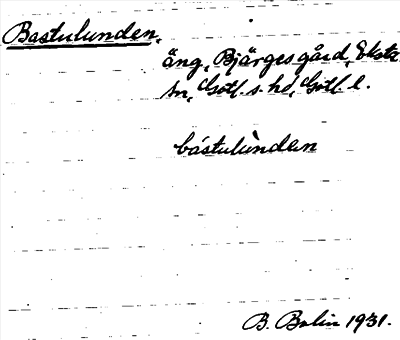 Bastulunden,
äng, Bjärges gård, Eksta
sn, Gotl. s. hd, Gotl. l.
bástulùnden
B. Bolin 1931.